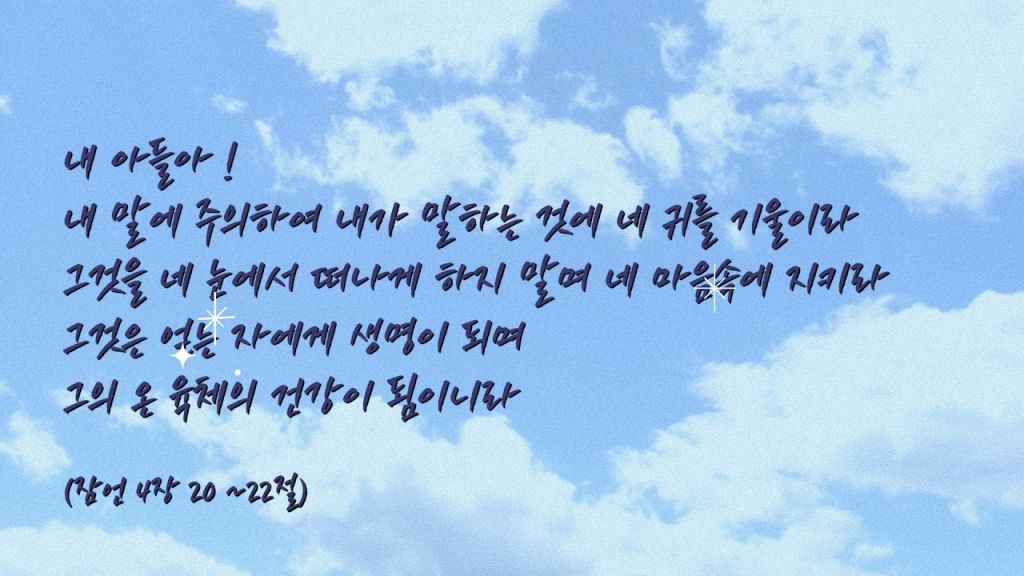 내 아들아 !
내 말에 주의하여 내가 말하는 것에 네 귀를 기울이라
그것을 네 눈에서 떠나게 하지 말며 네 마음속에 지키라
그것은 얻는 자에게 생명이 되며
그의 온 육체의 건강이 됨이니라
(잠언 4장 20 ~22절)